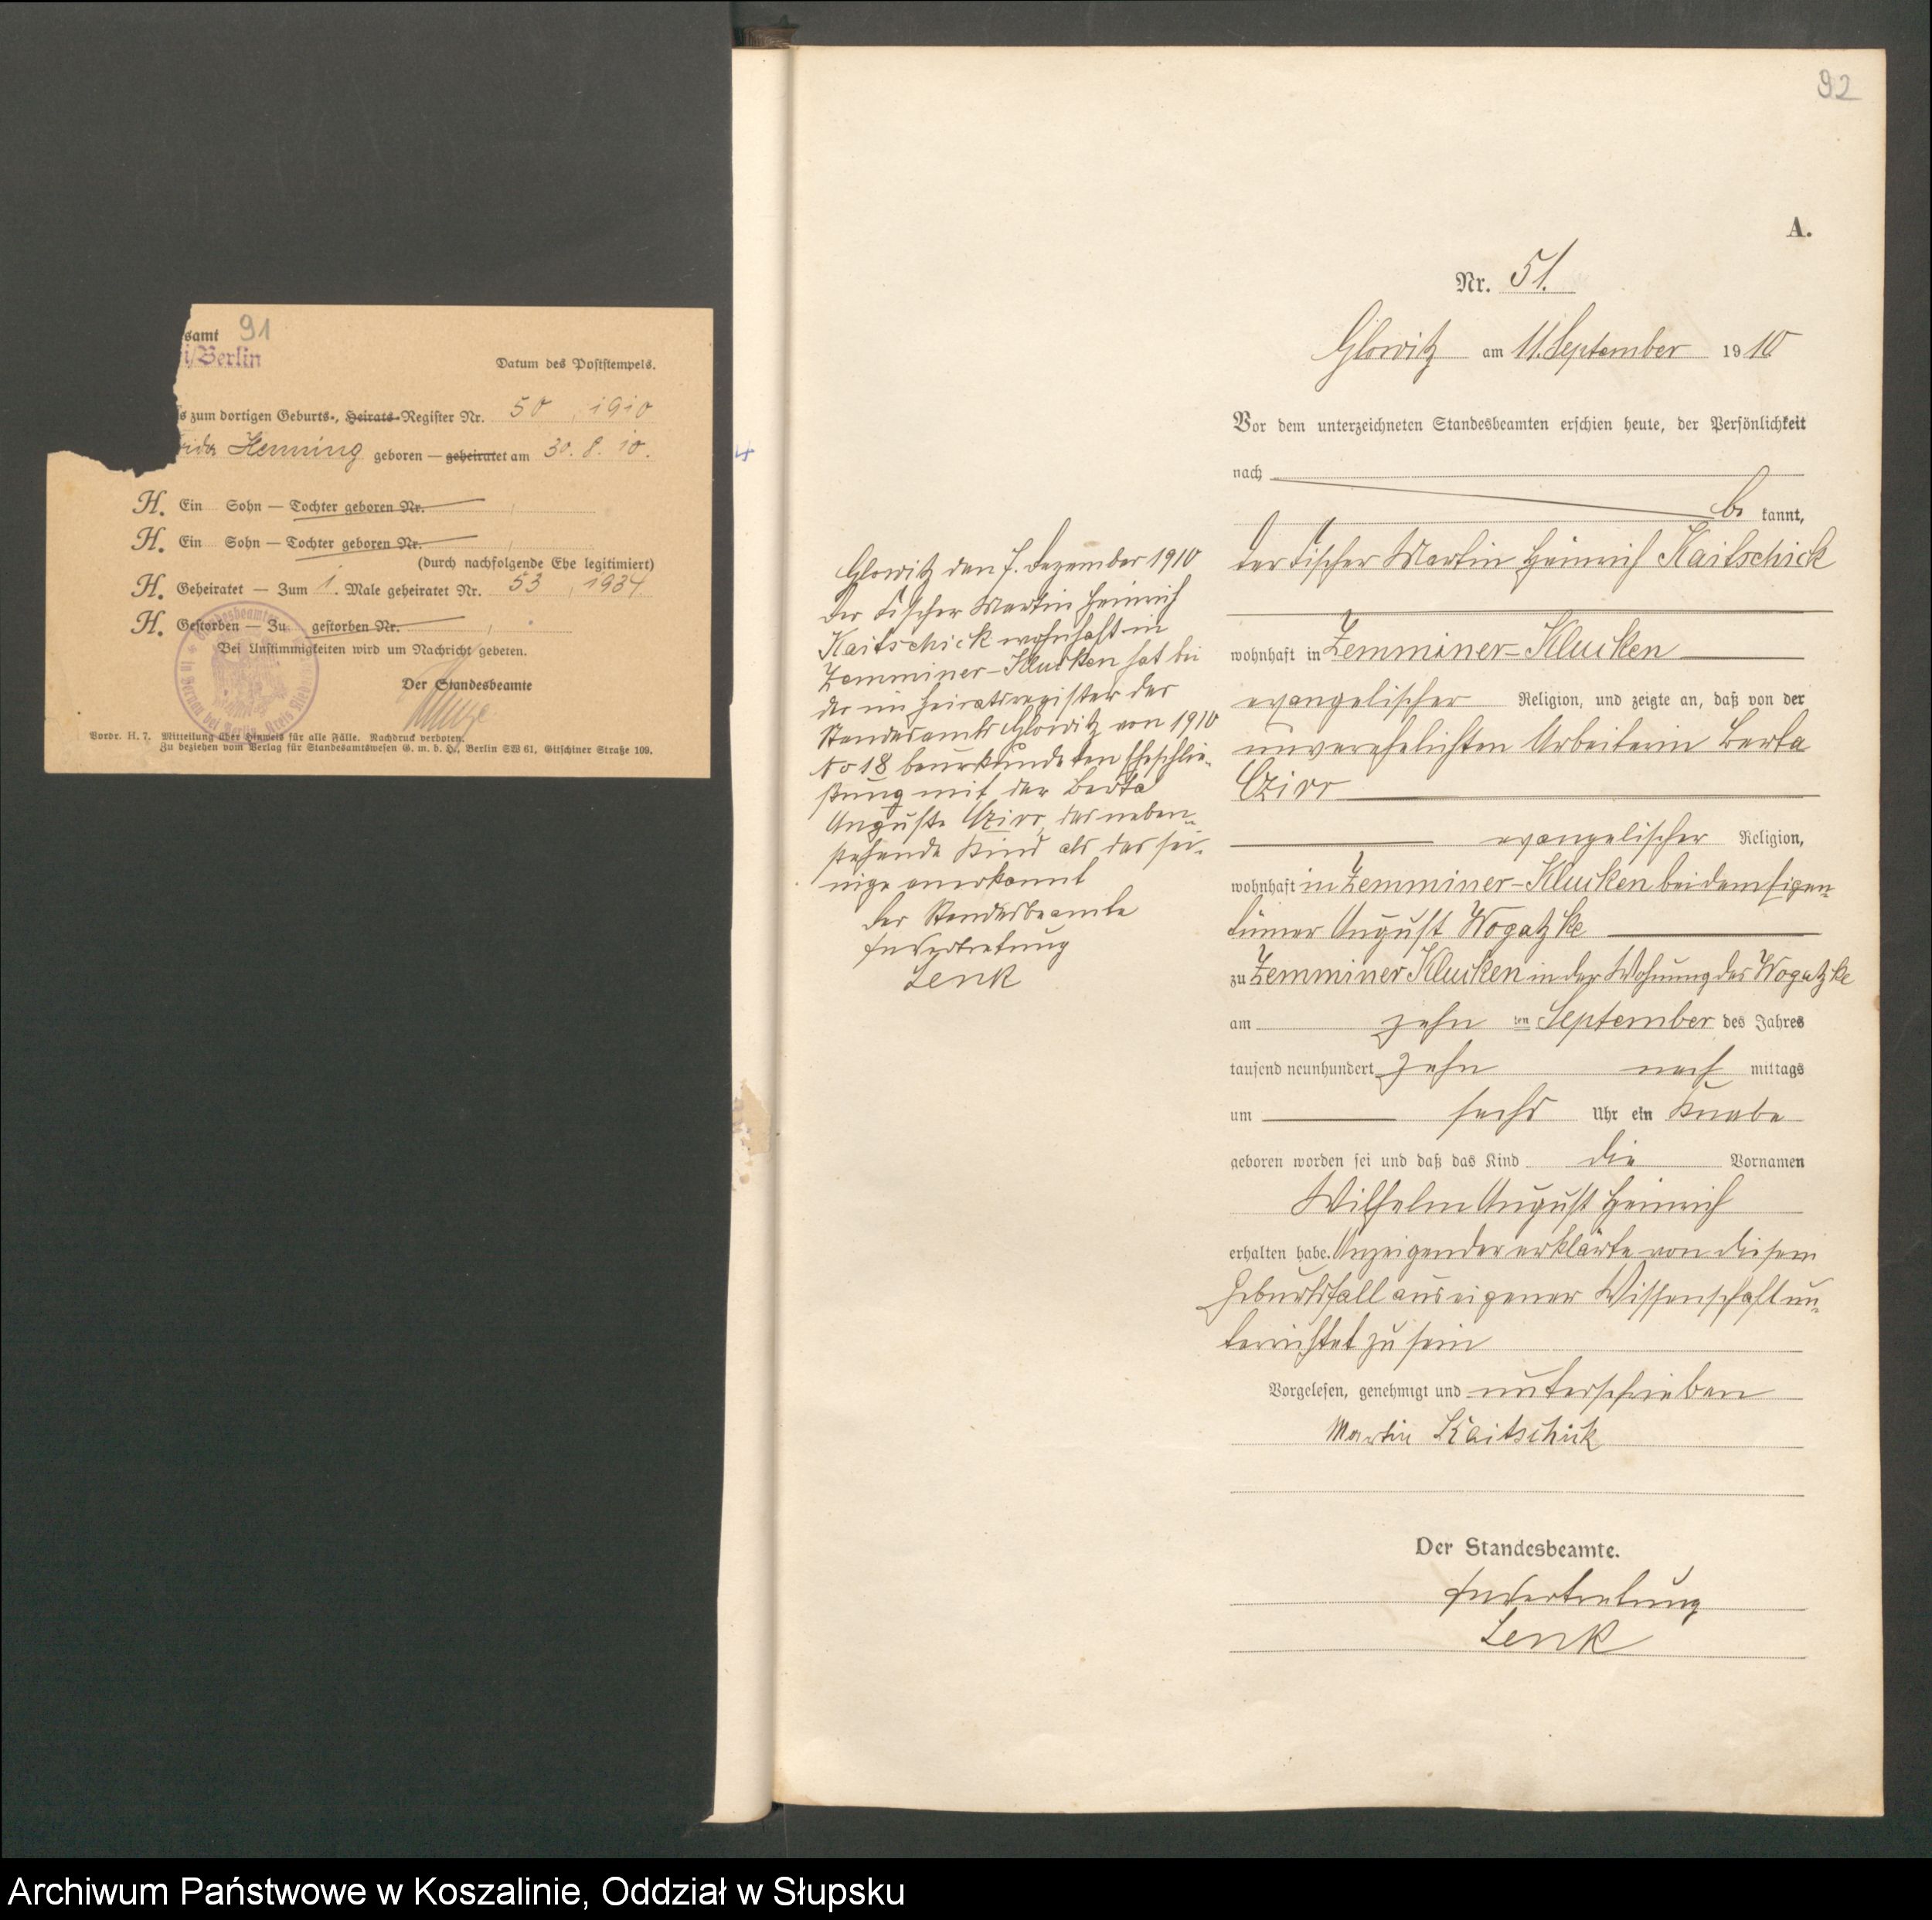 samt 91
i/Berlin
Datum des Poststempels.
s zum dortigen Geburts-, Heirats-Register Nr. 50, 1910
rida Henning geboren — geheiratet am 30. 8. 10.
H. Ein Sohn — Tochter geboren Nr.
H. Ein Sohn — Tochter geboren Nr.
(durch nachfolgende Ehe legitimiert)
H. Geheiratet — Zum 1. Male geheiratet Nr. 53, 1934
H. Gestorben — Zu gestorben Nr.
Bei Unstimmigkeiten wird um Nachricht gebeten.
Der Standesbeamte
Vordr. H. 7. Mitteilung über Hinweis für alle Fälle. Nachdruck verboten.
Zu beziehen vom Verlag für Standesamtswesen G. m. b. H., Berlin SW 61, Gitschiner Straße 109.
92
A.
Nr. 51.
Glowitz am 11. September 1910
Vor dem unterzeichneten Standesbeamten erschien heute, der Persönlichkeit
nach
be kannt,
der Fischer Martin Heinrich Kaitschick
wohnhaft in Zemminer-Klucken
evangelischer Religion, und zeigte an, daß von der
unverehelichten Arbeiterin Berta
Czirr
evangelischer Religion,
wohnhaft in Zemminer-Klucken bei dem Eigen-
tümer August Wogatzke
zu Zemminer Klucken in der Wohnung des Wogatzke
am zehn ten September des Jahres
tausend neunhundert zehn nach mittags
um sechs Uhr ein Knabe
geboren worden sei und daß das Kind die Vornamen
Wilhelm August Heinrich
erhalten habe. Anzeigender erklärte von diesem
Geburtsfall aus eigener Wissenschaft un-
terrichtet zu sein
Vorgelesen, genehmigt und unterschrieben
Martin Kaitschick
Der Standesbeamte.
In Vertretung
Lenk
Glowitz den 7. Dezember 1910
Der Fischer Martin Heinrich
Kaitschick wohnhaft in
Zemminer-Klucken hat bei
der im Heiratsregister des
Standesamts Glowitz von 1910
No 18 beurkundeten Eheschlie-
ßung mit der Berta
Auguste Czirr, das neben-
stehende Kind als das sei-
nige anerkannt
Der Standesbeamte
In Vertretung
Lenk
Archiwum Państwowe w Koszalinie, Oddział w Słupsku